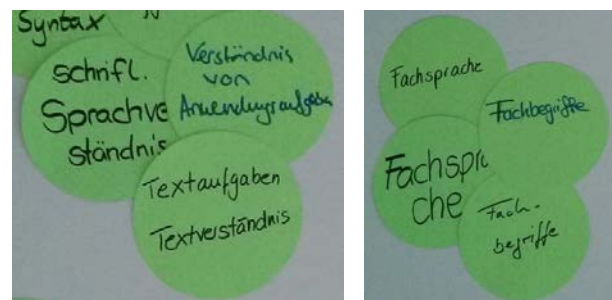 Syntax
schriftl.
Sprachve
ständnis
Verständnis
von
Anwendungsaufgaben
Textaufgaben
Textverständnis
Fachsprache
Fachbegriffe
Fachspra
che
Fach-
begriffe